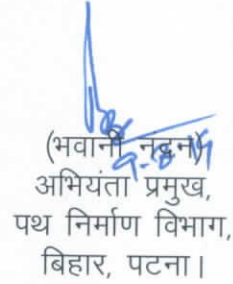 (भवानी नन्दन)
अभियंता प्रमुख,
पथ निर्माण विभाग,
बिहार, पटना।